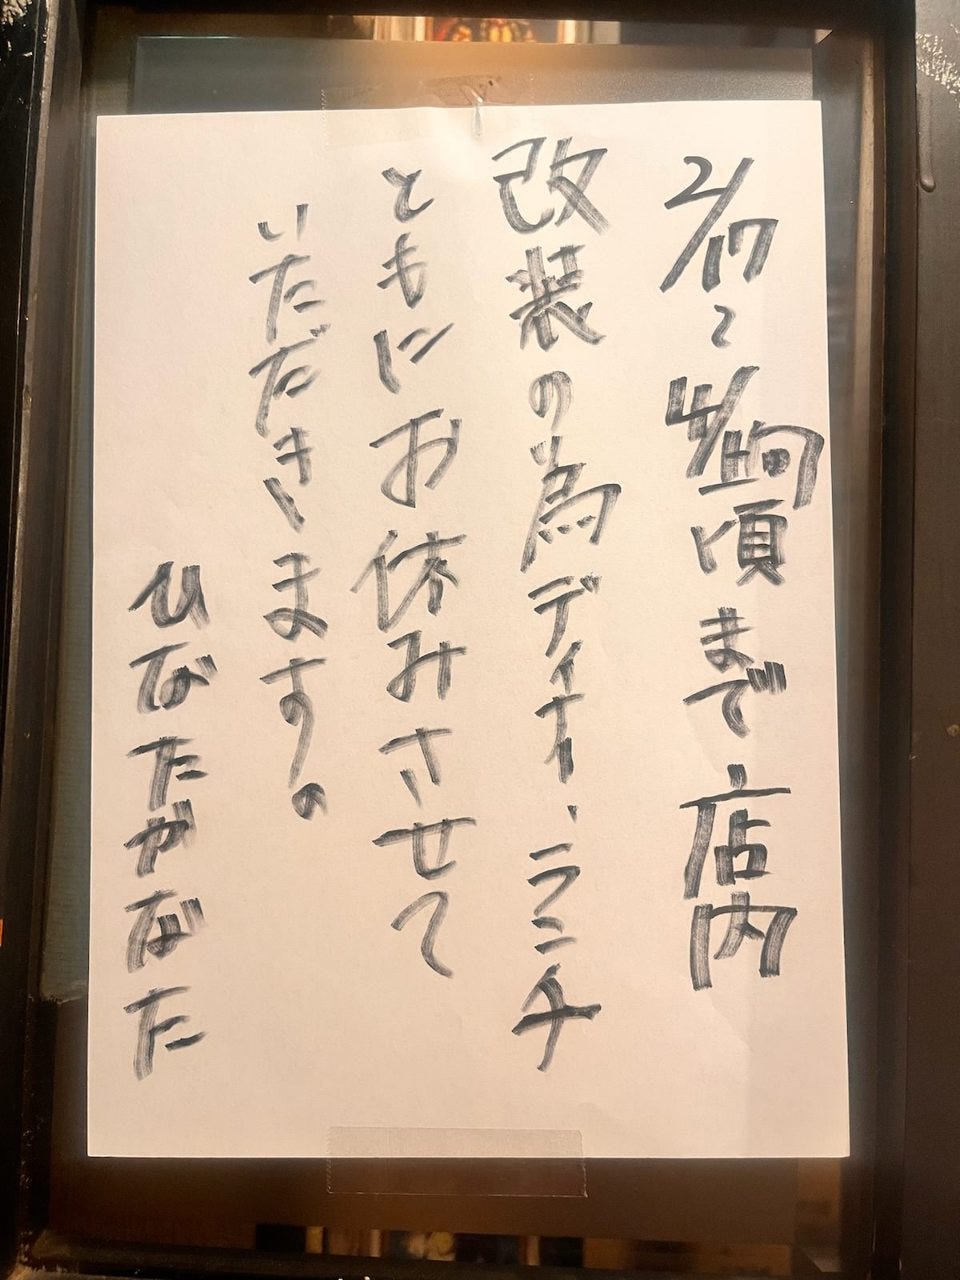 2/17~4/上旬頃まで店内
改装の為ディナー、ランチ
ともにお休みさせて
いただきます。
ひなたかなた